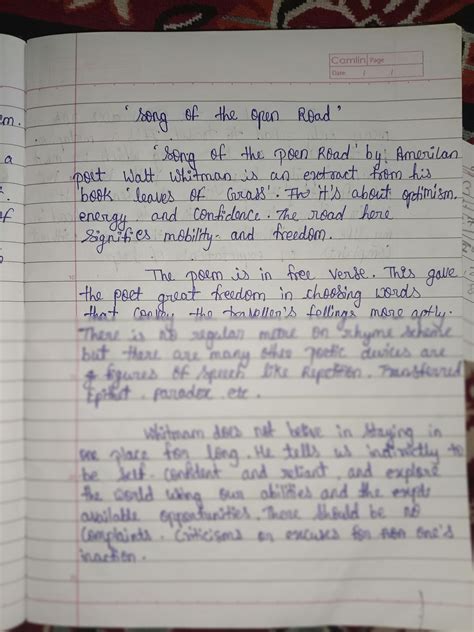 Camlin Page
Date / /
em.
a
'Song of the open Road'
'Song of the poen Road' by Amerilan
poet Walt Whitman is an extract from his
book 'leaves of Grass'. The it's about optimism.
energy and confidence. The road here
signifies mobility and freedom.
The poem is in free verse. This gave
the poet great freedom in choosing words
that convey the travller's fellings more aptly.
There is no regular metre on rhyme scheme
but there are many other poetic devices are
figures of speech like Repetition. Transferred
Epithet, paradox etc.
Whitmam does not belive in staying in
one place for long. He tells us indirectly to
be self-confident and reliant, and explore
the world using our abilities and the
available opportunities. There should be no
Complaints. Criticisms or excuses for non one's
inaction.